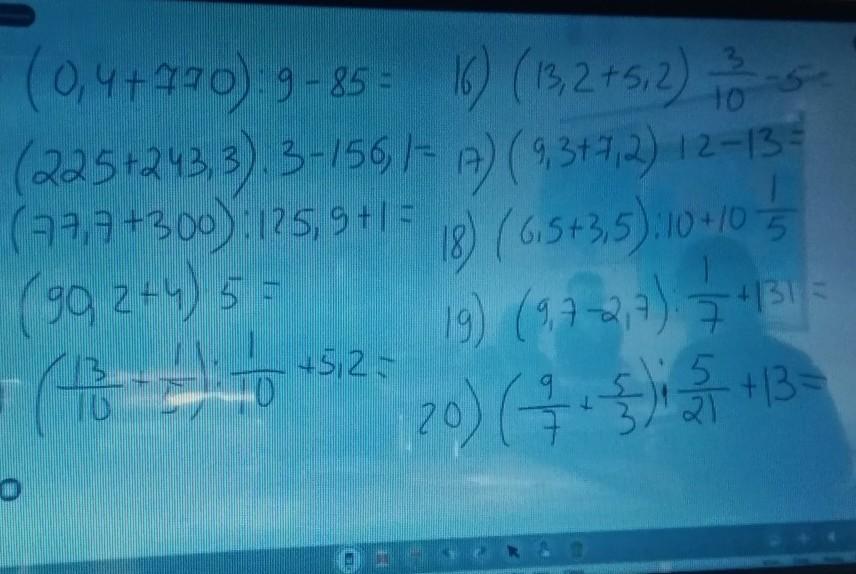 (0,4+770):9-85=
(225+243,3):3-156,1=
(77,7+300):125,9+1=
(90,2+4)·5=
16) (13,2+5,2) 3/10 -5=
17) (9,3+7,2) 12-13=
18) (6,5+3,5):10+10 1/5
19) (9,7-2,7):1/7+131=
20) (9/7+5/3):5/21+13=